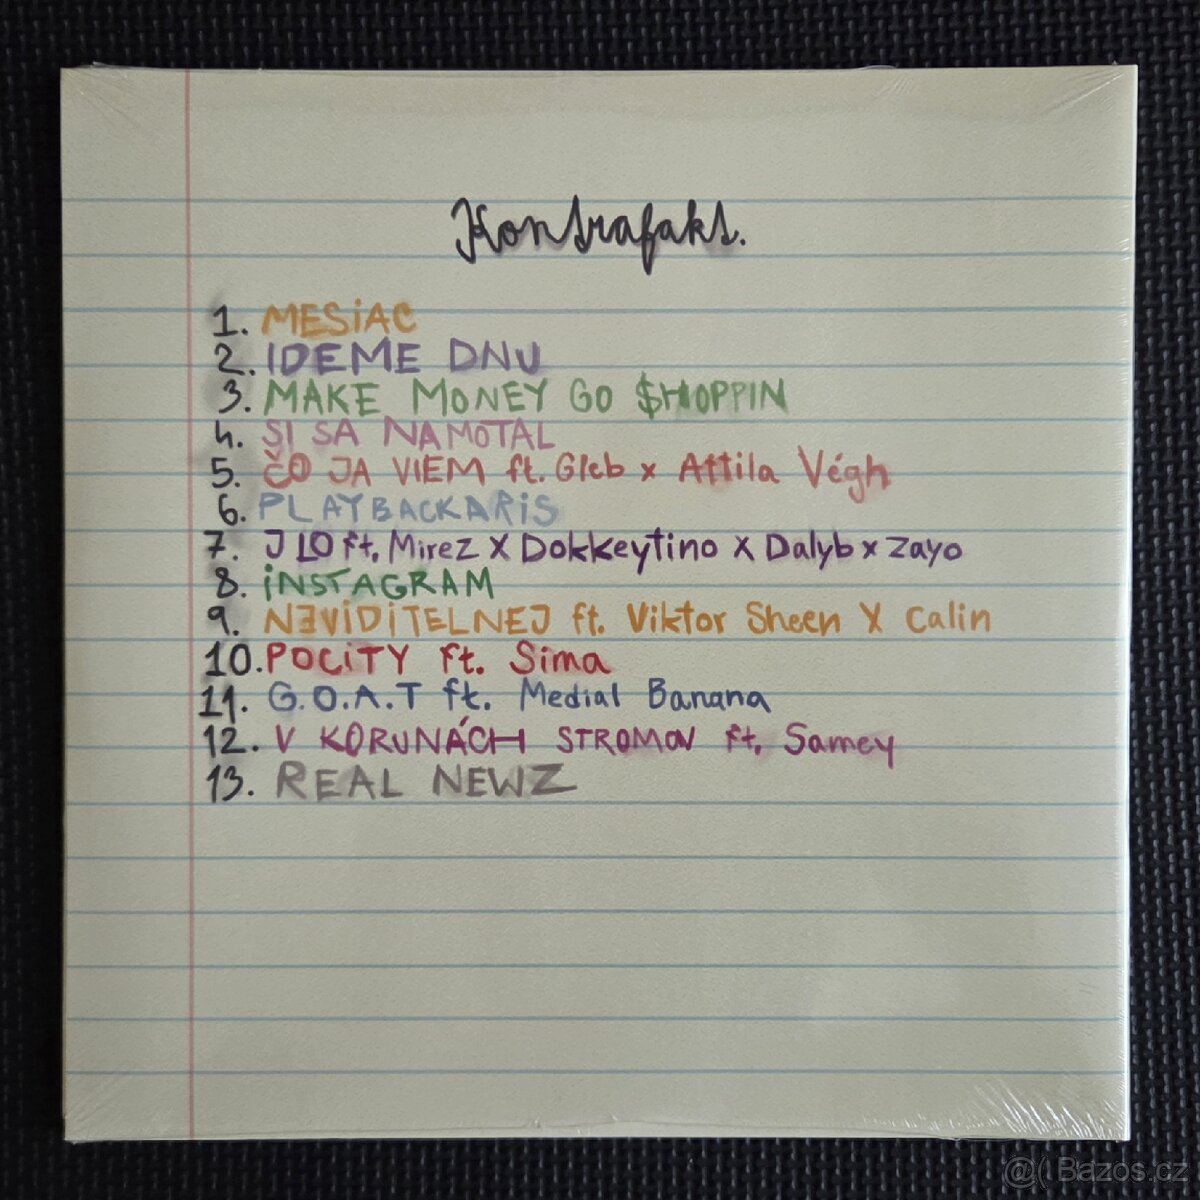 Kontrafakt.
1. MESiAC
2. IDEME DNU
3. MAKE MONEY GO $HOPPIN
4. SI SA NAMOTAL
5. ČO JA VIEM ft. Gleb x Attila Végh
6. PLAYBACKARiS
7. J LO ft. Mirez X Dokkeytino X Dalyb x Zayo
8. iNSTAGRAM
9. NEViDiTELNEJ ft. Viktor Sheen X Calin
10. POCiTY ft. Sima
11. G.O.A.T ft. Medial Banana
12. V KORUNÁCH STROMOV ft. Samey
13. REAL NEWZ
@( Bazos.cz